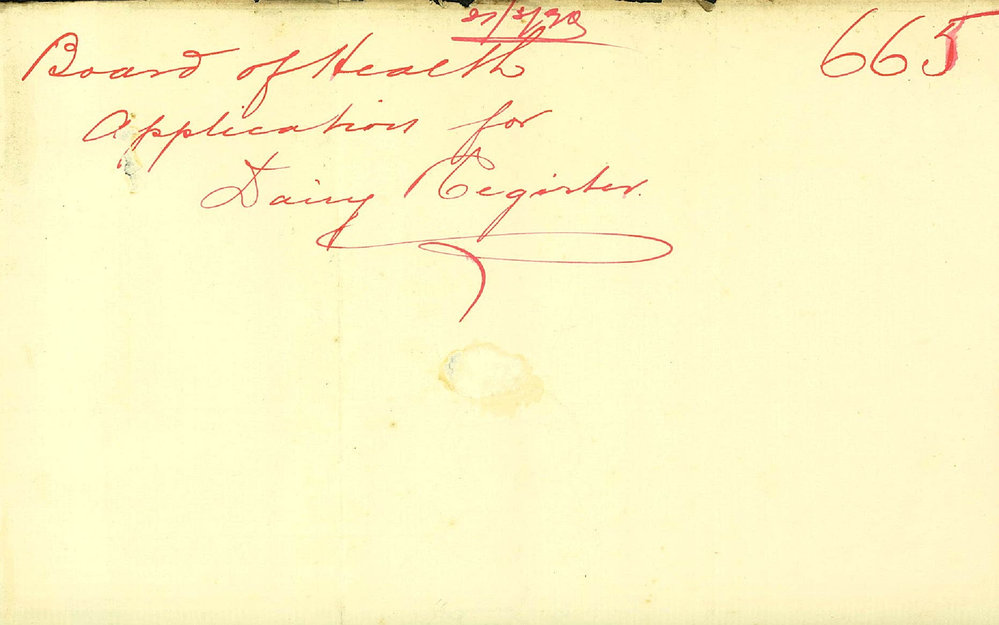 665
Board of Health
Application for
Dairy Register.